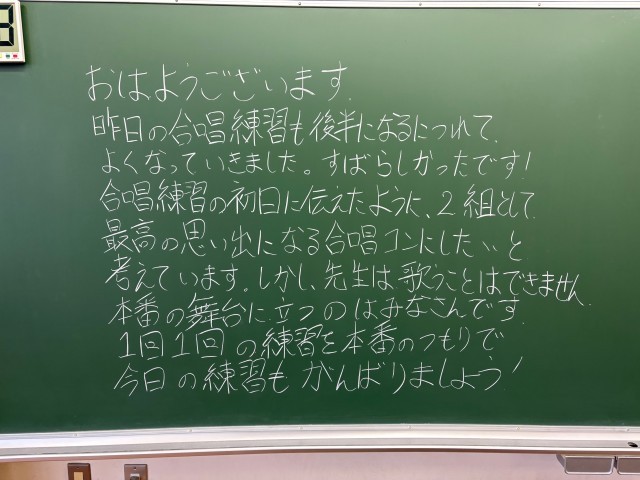 おはようございます.
昨日の合唱練習も後半になるにつれて、
よくなっていきました。すばらしかったです!
合唱練習の初日に伝えたように、2組として
最高の思い出になる合唱コンにしたいと
考えています。しかし、先生は歌うことはできません.
本番の舞台に立つのはみなさんです.
1回1回の練習を本番のつもりで
今日の練習もがんばりましょう!